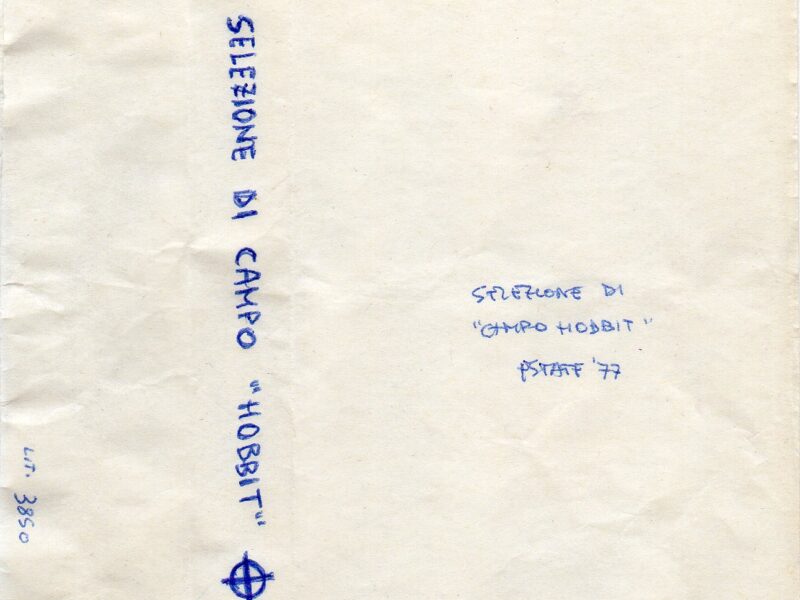 SELEZIONE DI CAMPO "HOBBIT"
SELEZIONE DI
"CAMPO HOBBIT"
ESTATE '77
LIT. 3850